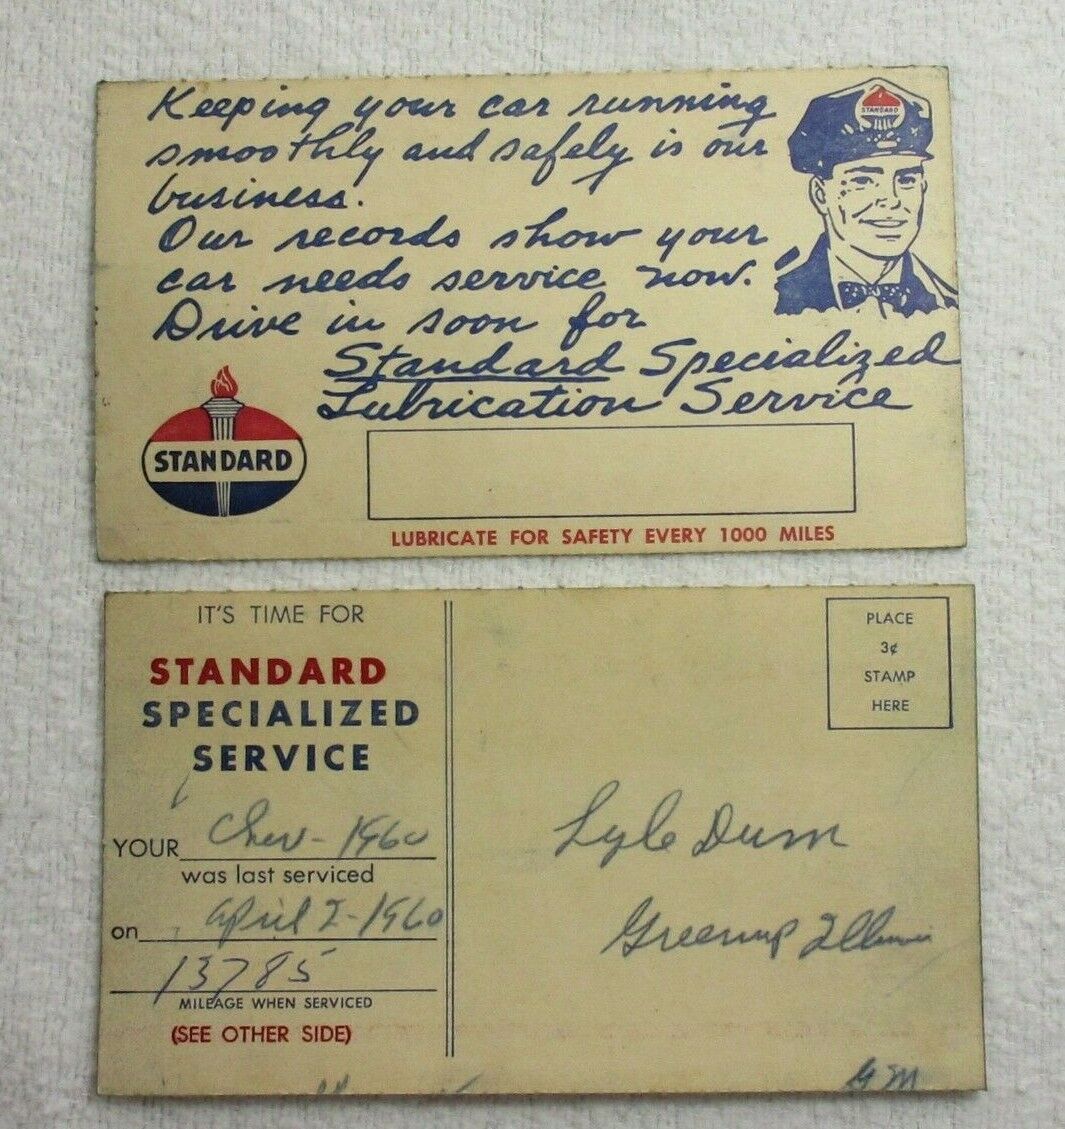 Keeping your car running
smoothly and safely is our
business.
Our records show your
car needs service now.
Drive in soon for
Standard Specialized
Lubrication Service
STANDARD
STANDARD
LUBRICATE FOR SAFETY EVERY 1000 MILES
IT'S TIME FOR
STANDARD
SPECIALIZED
SERVICE
YOUR Chev-1960
was last serviced
on April 2-1960
13785
MILEAGE WHEN SERVICED
(SEE OTHER SIDE)
PLACE
3¢
STAMP
HERE
Lyle Dunn
Greenup Illinois